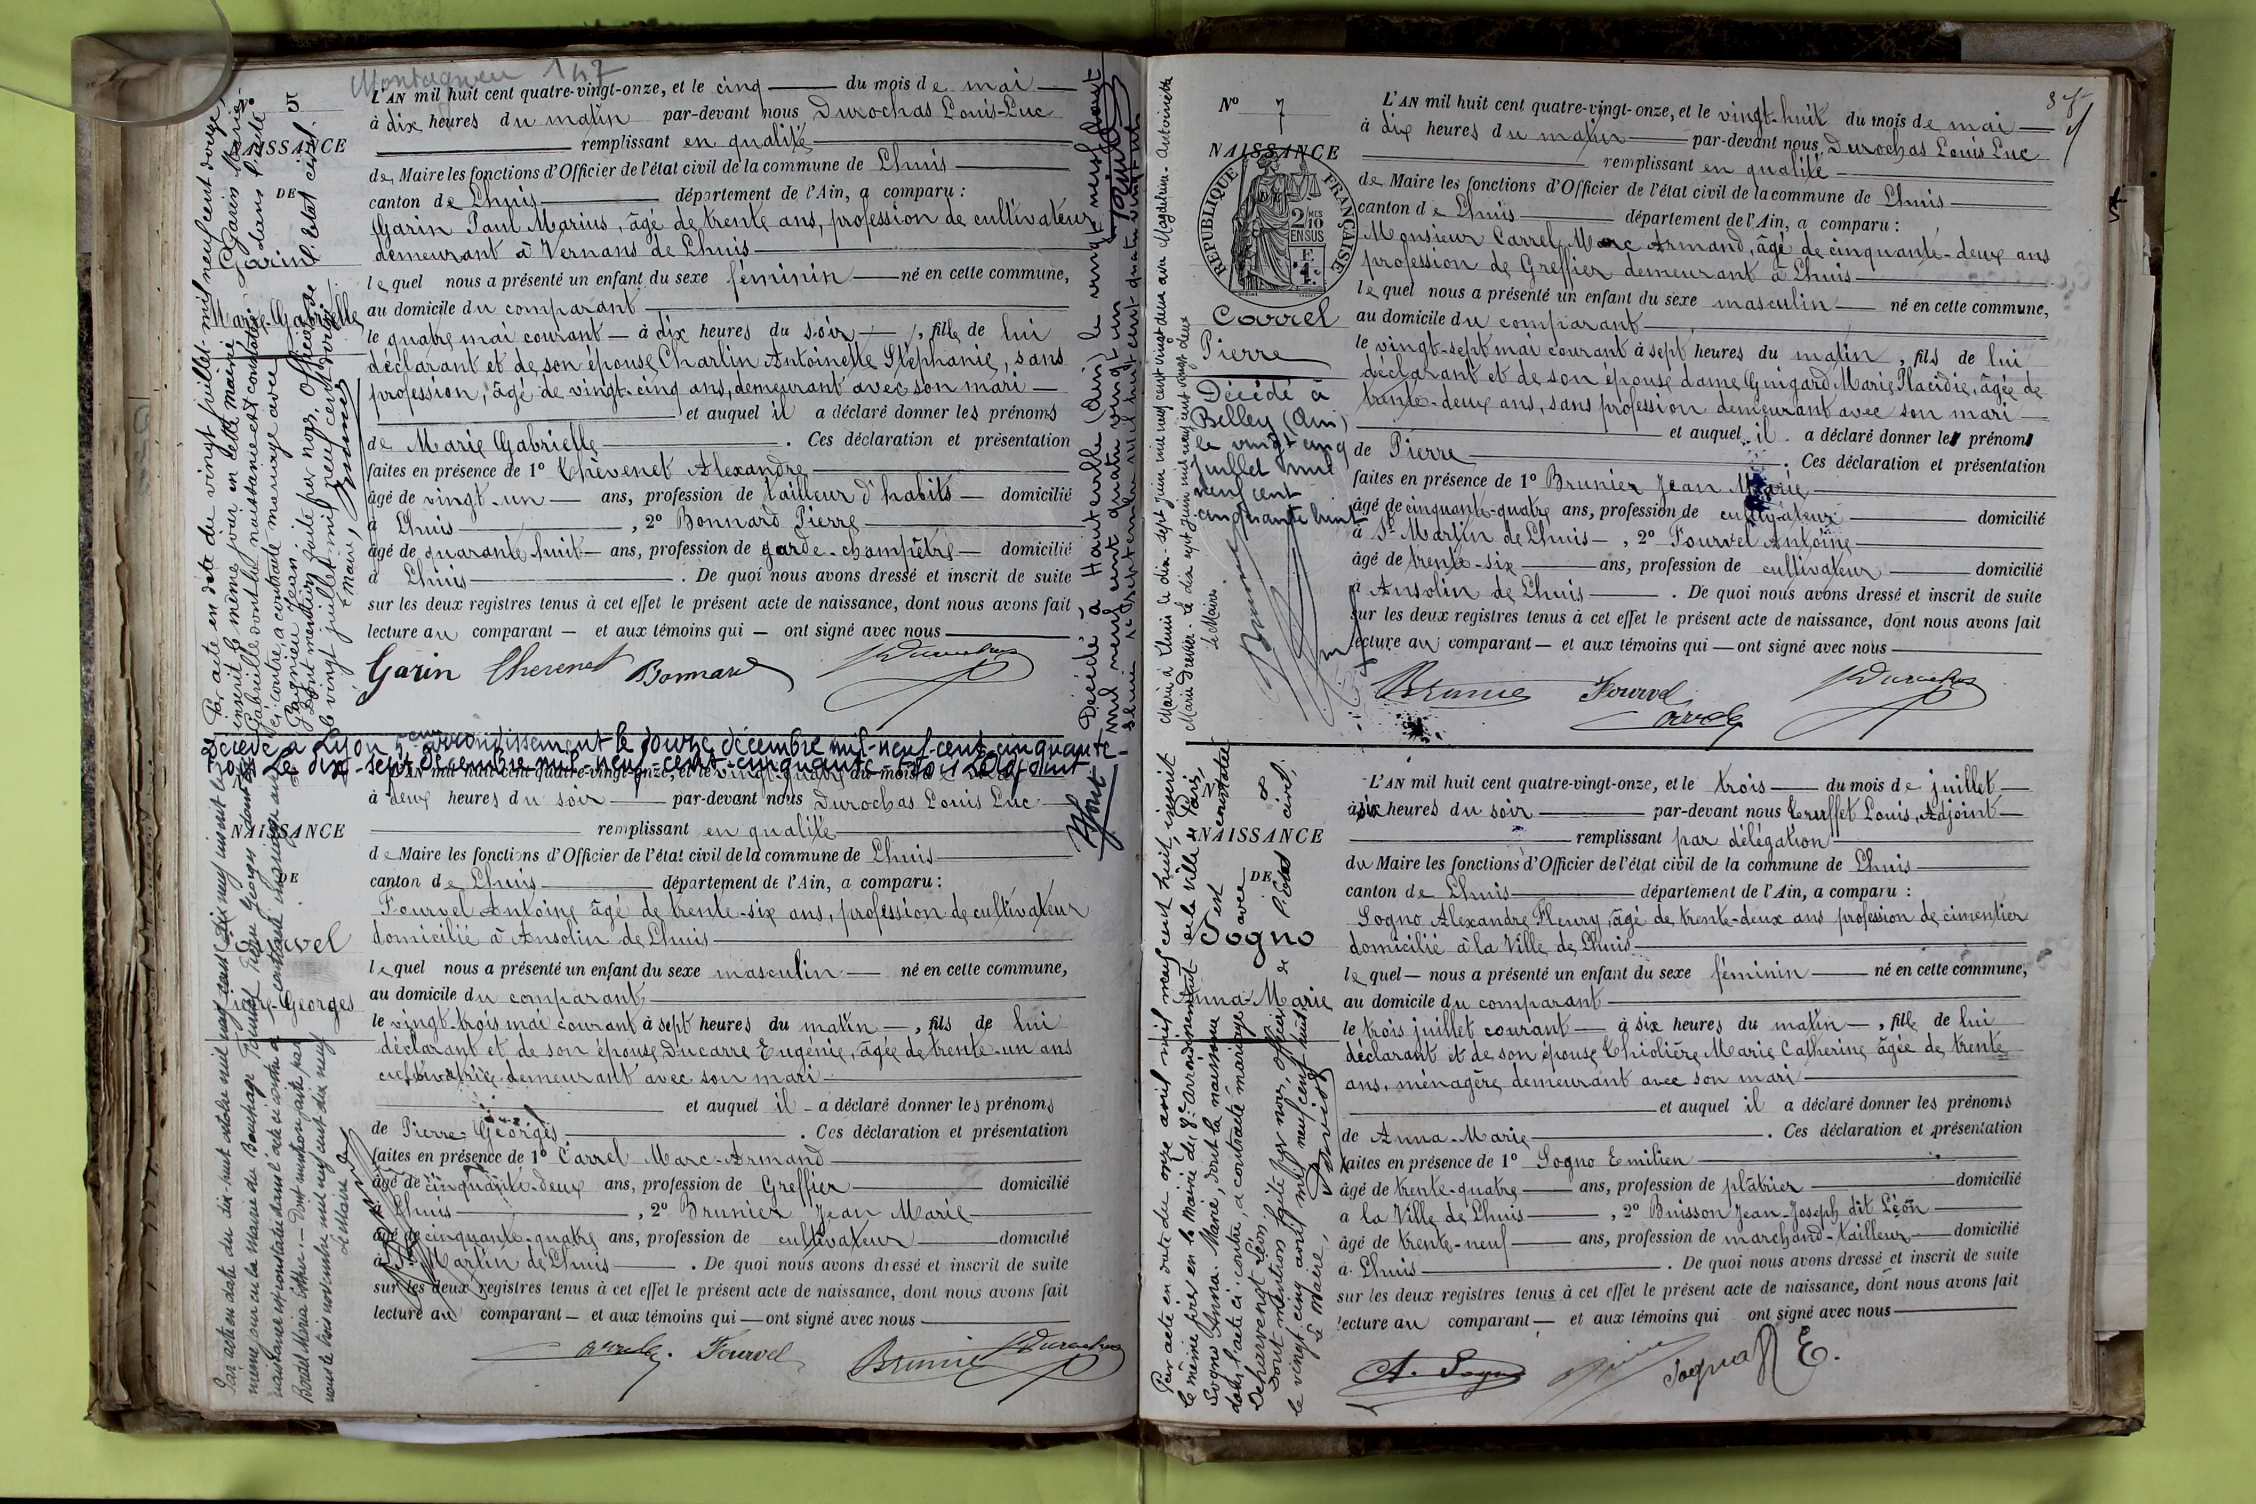 Montagnieu 147
N° 5
NAISSANCE
DE
Garin
Marie-Gabrielle
L'AN mil huit cent quatre-vingt-onze, et le cinq du mois de mai
à dix heures du matin par-devant nous Durochas Louis-Luc
remplissant en qualité
de Maire les fonctions d'Officier de l'état civil de la commune de Lhuis
canton de Lhuis département de l'Ain, a comparu :
Garin Paul Marius, âgé de trente ans, profession de cultivateur
demeurant à Vernans de Lhuis
lequel nous a présenté un enfant du sexe féminin né en cette commune,
au domicile du comparant
le quatre mai courant à dix heures du soir, fille de lui
déclarant et de son épouse Charlin Antoinette Stéphanie, sans
profession, âgé de vingt-cinq ans, demeurant avec son mari
et auquel il a déclaré donner les prénoms
de Marie Gabrielle. Ces déclaration et présentation
faites en présence de 1° Thévenet Alexandre
âgé de vingt-un ans, profession de tailleur d'habits domicilié
à Lhuis, 2° Bonnard Pierre
âgé de quarante-huit ans, profession de garde-champêtre domicilié
à Lhuis. De quoi nous avons dressé et inscrit de suite
sur les deux registres tenus à cet effet le présent acte de naissance, dont nous avons fait
lecture au comparant et aux témoins qui ont signé avec nous
Garin Thevenet Bonnard Durochas
Par acte en date du vingt juillet mil neuf cent douze,
inscrit le même jour en cette mairie, Garin Marie-
Gabrielle dont la naissance est constatée dans l'acte
ci-contre, a contracté mariage avec
Jean
Dont mention faite par nous, Officier de l'état civil.
le vingt juillet mil neuf cent douze
Le Maire,
Décédée à Hauteville (Ain) le vingt neuf août
mil neuf cent quatre vingt un
Décédé à Lyon 5eme arrondissement le douze décembre mil-neuf-cent-cinquante-
trois Le dix-sept décembre mil-neuf-cent-cinquante-trois L'adjoint
NAISSANCE
DE
Fourvel
Pierre-Georges
L'AN mil huit cent quatre-vingt-onze, et le vingt-quatre du mois de mai
à deux heures du soir par-devant nous Durochas Louis Luc
remplissant en qualité
de Maire les fonctions d'Officier de l'état civil de la commune de Lhuis
canton de Lhuis département de l'Ain, a comparu :
Fourvel Antoine âgé de trente-six ans, profession de cultivateur
domicilié à Ansolin de Lhuis
lequel nous a présenté un enfant du sexe masculin né en cette commune,
au domicile du comparant,
le vingt-trois mai courant à sept heures du matin, fils de lui
déclarant et de son épouse Ducarre Eugénie, âgée de trente-un ans
cultivatrice demeurant avec son mari
et auquel il a déclaré donner les prénoms
de Pierre-Georges. Ces déclaration et présentation
faites en présence de 1° Carrel Marc-Armand
âgé de cinquante-deux ans, profession de Greffier domicilié
à Lhuis, 2° Brunier Jean Marie
âgé de cinquante-quatre ans, profession de cultivateur domicilié
à St Martin de Lhuis. De quoi nous avons dressé et inscrit de suite
sur les deux registres tenus à cet effet le présent acte de naissance, dont nous avons fait
lecture au comparant et aux témoins qui ont signé avec nous
Carrel Fourvel Brunier Durochas
Par acte en date du dix huit octobre mil neuf cent dix neuf inscrit le
même jour en la mairie du Bouchage Fourvel Pierre Georges dont la
naissance est constatée dans l'acte ci-contre a contracté mariage avec
Maria Esther. Dont mention faite par
nous le trois novembre mil neuf cent dix neuf
Le Maire
N° 7
NAISSANCE
DE
RÉPUBLIQUE FRANÇAISE
2/10 EN SUS
Carrel
Pierre
L'AN mil huit cent quatre-vingt-onze, et le vingt-huit du mois de mai
à dix heures du matin par-devant nous Durochas Louis Luc
remplissant en qualité
de Maire les fonctions d'Officier de l'état civil de la commune de Lhuis
canton de Lhuis département de l'Ain, a comparu :
Monsieur Carrel Marc Armand, âgé de cinquante-deux ans
profession de Greffier demeurant à Lhuis
lequel nous a présenté un enfant du sexe masculin né en cette commune,
au domicile du comparant
le vingt-sept mai courant à sept heures du matin, fils de lui
déclarant et de son épouse dame Guigard Marie Placidie, âgée de
trente-deux ans, sans profession demeurant avec son mari
et auquel il a déclaré donner le prénom
de Pierre. Ces déclaration et présentation
faites en présence de 1° Brunier Jean Marie
âgé de cinquante-quatre ans, profession de cultivateur domicilié
à St Martin de Lhuis, 2° Fourvel Antoine
âgé de trente-six ans, profession de cultivateur domicilié
à Ansolin de Lhuis. De quoi nous avons dressé et inscrit de suite
sur les deux registres tenus à cet effet le présent acte de naissance, dont nous avons fait
lecture au comparant et aux témoins qui ont signé avec nous
Brunier Fourvel Durochas
Carrel
Décédé à
Belley (Ain)
le vingt cinq
juillet mil
neuf cent
cinquante huit
Marié à Lhuis le dix-sept juin mil neuf cent vingt deux avec Magdeleine-Antoinette
le dix sept juin mil neuf cent vingt deux
Le Maire
N° 8
NAISSANCE
DE
Sogno
Anna-Marie
L'AN mil huit cent quatre-vingt-onze, et le trois du mois de juillet
à six heures du soir par-devant nous Truffet Louis, Adjoint
remplissant par délégation
du Maire les fonctions d'Officier de l'état civil de la commune de Lhuis
canton de Lhuis département de l'Ain, a comparu :
Sogno Alexandre Fleury, âgé de trente-deux ans profession de cimentier
domicilié à la Ville de Lhuis
lequel nous a présenté un enfant du sexe féminin né en cette commune,
au domicile du comparant
le trois juillet courant à six heures du matin, fille de lui
déclarant et de son épouse Thiolière Marie Catherine âgée de trente
ans, ménagère demeurant avec son mari
et auquel il a déclaré donner les prénoms
de Anna-Marie. Ces déclaration et présentation
faites en présence de 1° Sogno Emilien
âgé de trente-quatre ans, profession de plâtrier domicilié
à la Ville de Lhuis, 2° Buisson Jean-Joseph dit Léon
âgé de trente-neuf ans, profession de marchand-tailleur domicilié
à Lhuis. De quoi nous avons dressé et inscrit de suite
sur les deux registres tenus à cet effet le présent acte de naissance, dont nous avons fait
lecture au comparant et aux témoins qui ont signé avec nous
A. Sogno Sogno E.
Par acte en date du onze avril mil neuf cent huit, inscrit
le même jour en la Mairie du 8e arrondissement de la ville de Paris,
Sogno Anna-Marie, dont la naissance est constatée
dans l'acte ci-contre, a contracté mariage avec
Léon
Dont mention faite par nous, Officier de l'Etat civil,
le vingt cinq avril mil neuf cent huit,
Le Maire,